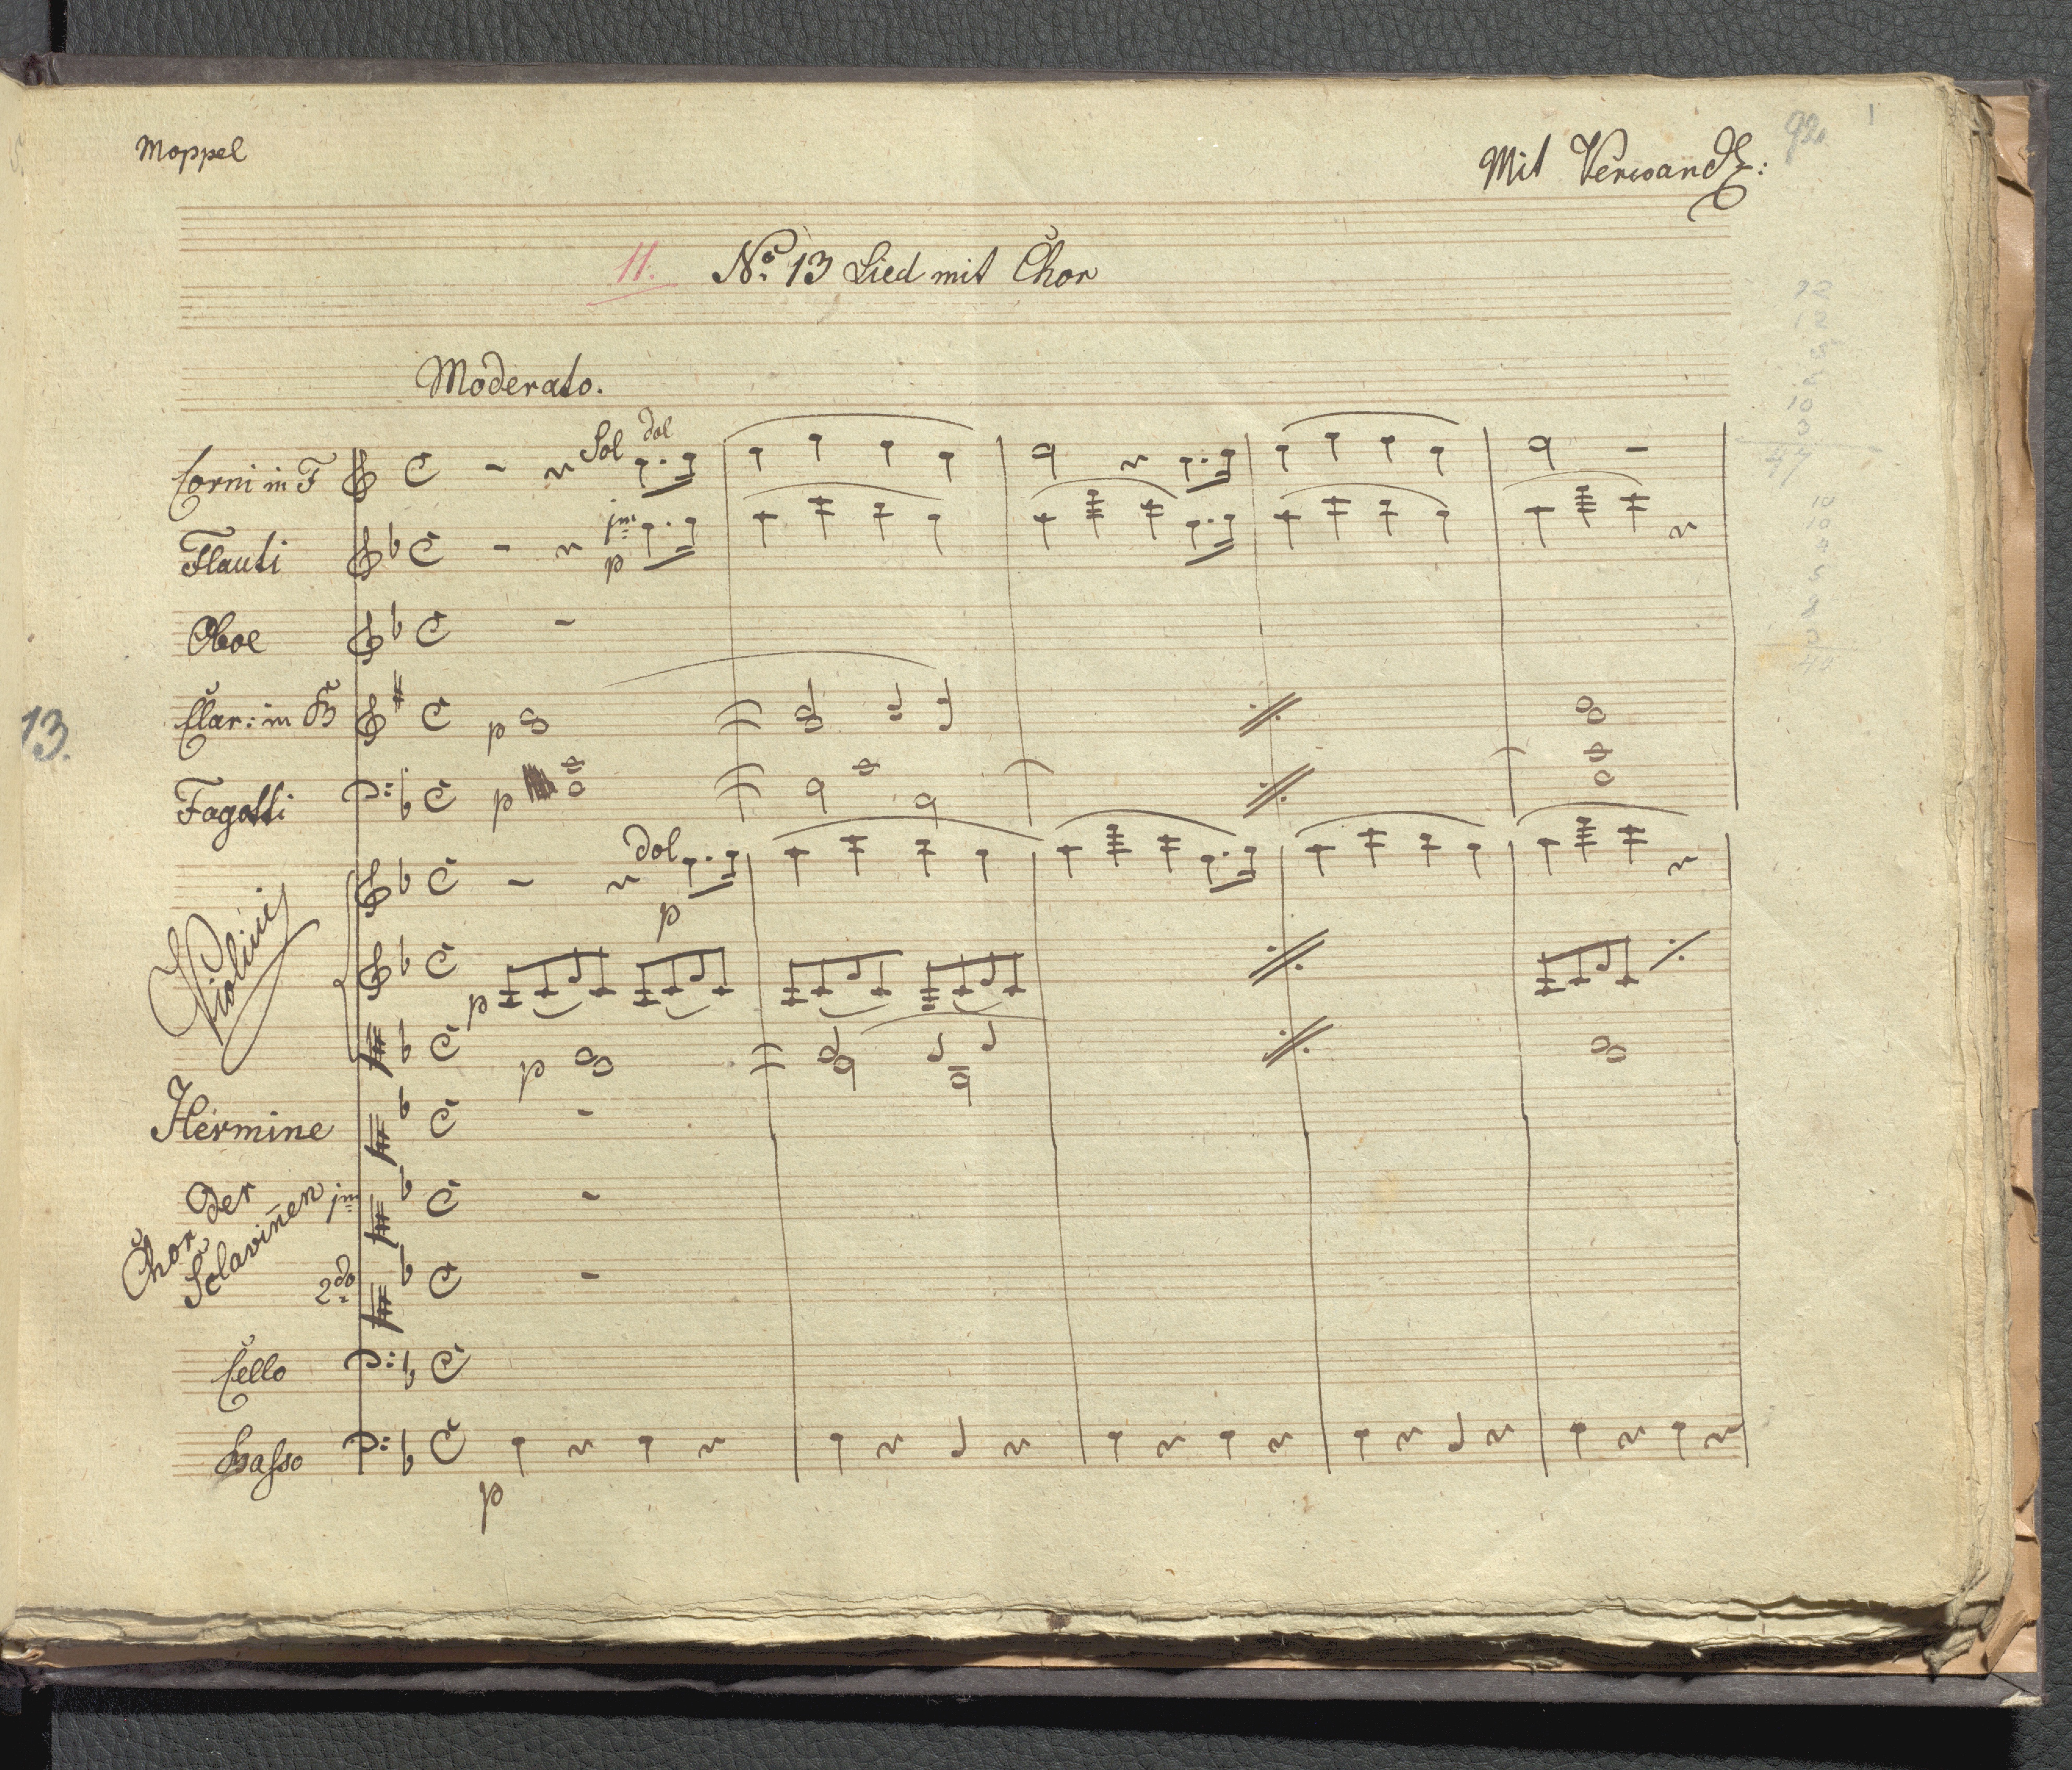 Moppel
Mit Verwandl:
92.
1
11. No. 13 Lied mit Chor
Moderato.
Corni in F
Sol dol
Flauti
imo
p
Oboe
Clar: in B
p
13.
Fagotti
p
Violini
dol
p
p
p
Hermine
Chor der Sclavin̄en imo
2do
Cello
Basso
p